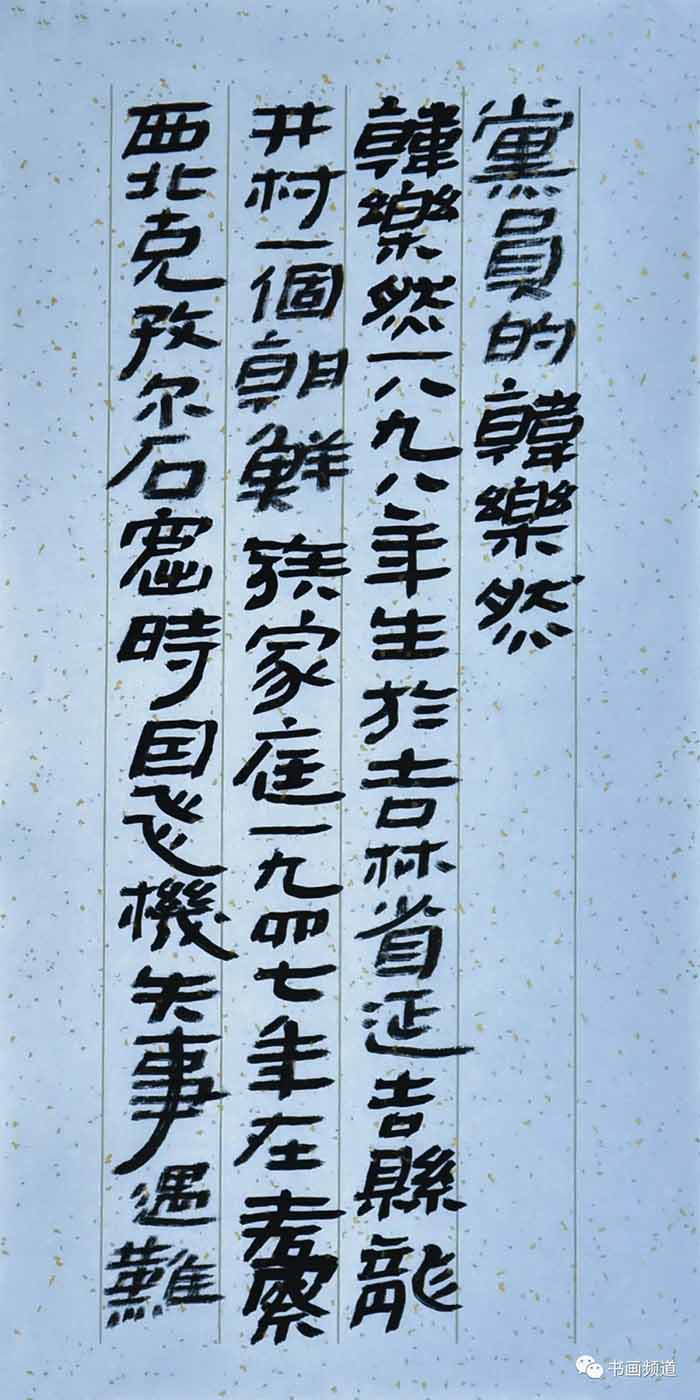 黨員的韓樂然
韓樂然一八九八年生於吉林省延吉縣龍
井村一個朝鮮族家庭一九四七年在考察
西北克孜尔石窟時因飞機失事遇難
书画频道